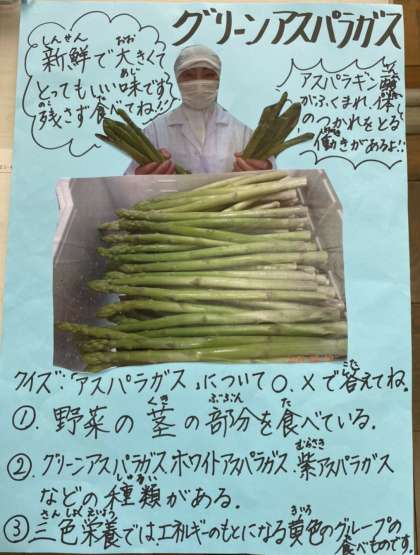 グリーンアスパラガス
新鮮で大きくて
とってもいい味です
残さず食べてね!!
アスパラギン酸
がふくまれ、体
のつかれをとる
働きがあるよ!!
クイズ:「アスパラガス」について○、×で答えてね。
①. 野菜の茎の部分を食べている.
②. グリーンアスパラガス.ホワイトアスパラガス.紫アスパラガス
などの種類がある.
③三色栄養では、エネルギーのもとになる黄色のグループの
食べものです。